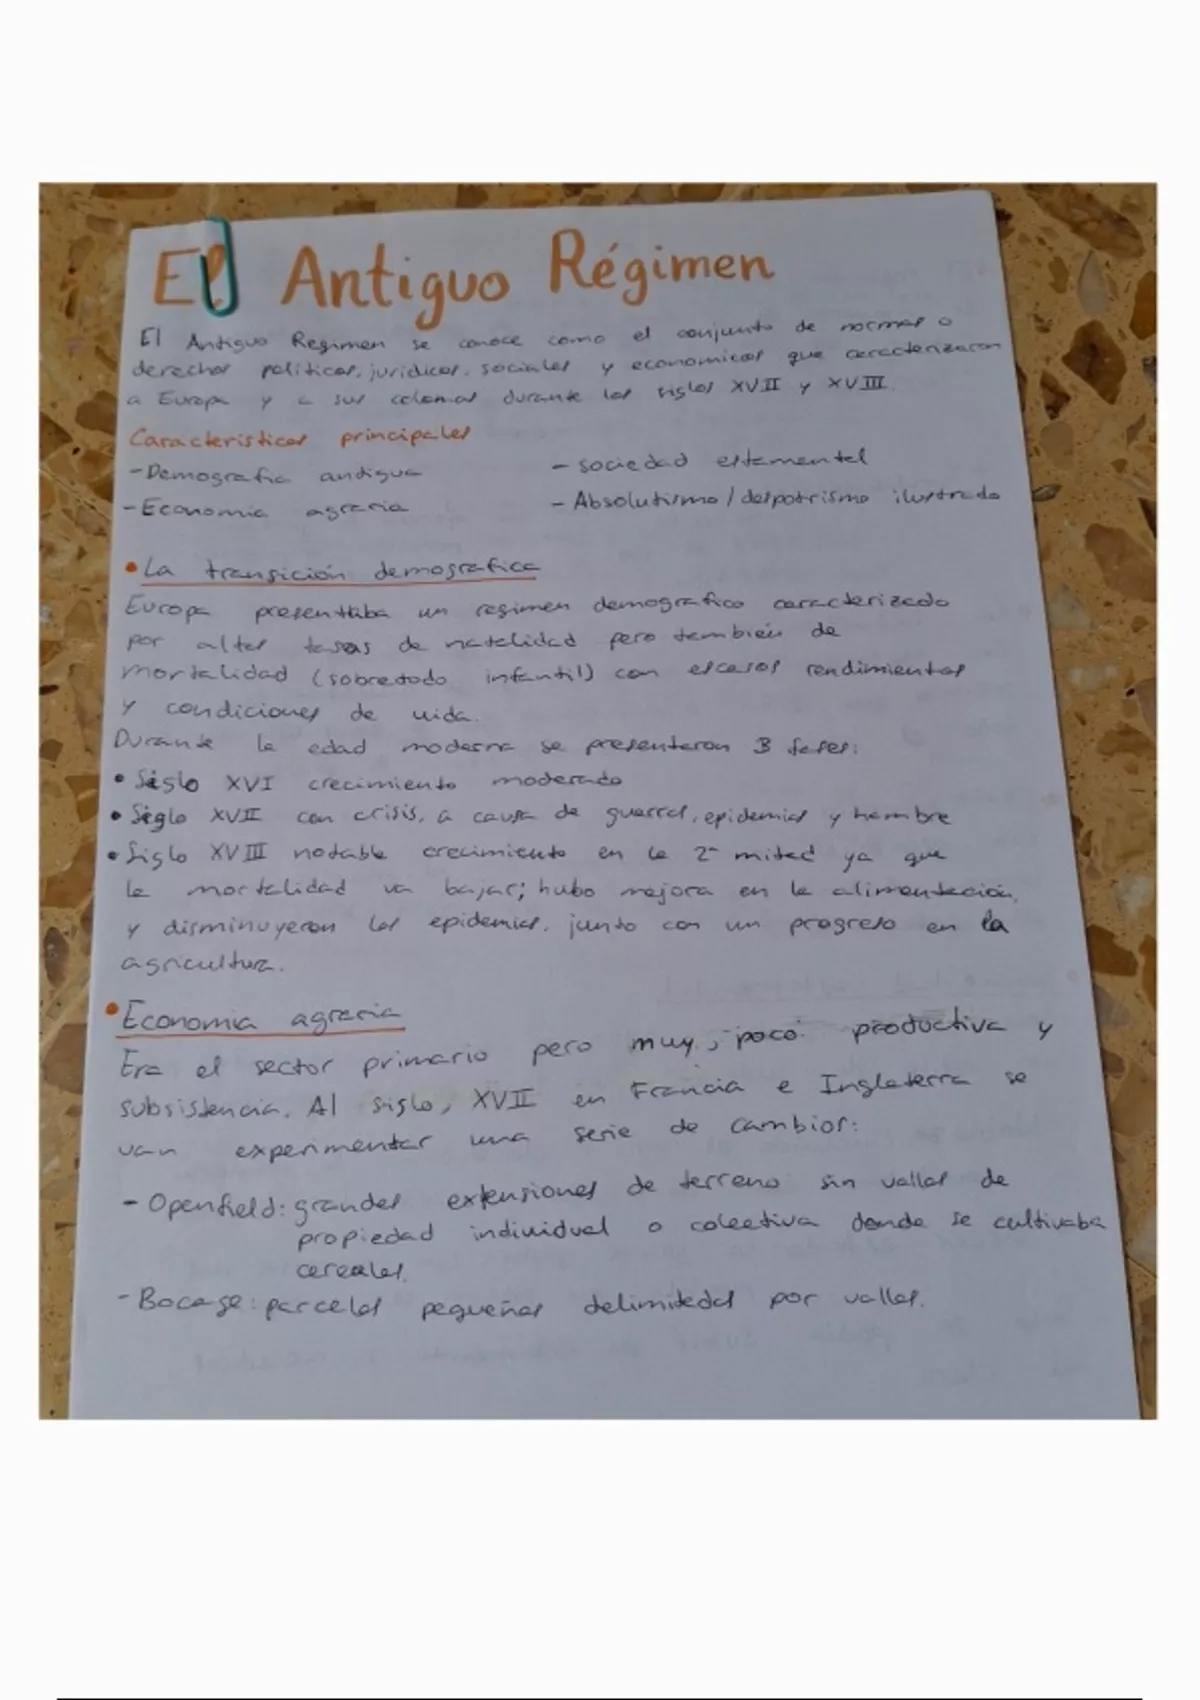 El Antiguo Régimen
El Antiguo Regimen se conoce como el conjunto de normas o
derechos politicos, juridicos, sociales y economicos que caracterizaron
a Europa y a sus colonias durante los siglos XVII y XVIII.
Caracteristicas principales
- Demografia antigua
- Economia agraria
- sociedad estamental
- Absolutismo / despotrismo ilustrado
• La transición demografica
Europa presentaba un regimen demografico caracterizado
por altas tasas de natalidad pero también de
mortalidad (sobretodo infantil) con escasos rendimientos
y condiciones de vida.
Durante la edad moderna se presentaron 3 fases:
• Siglo XVI crecimiento moderado
• Siglo XVII con crisis, a causa de guerras, epidemias y hambre
• Siglo XVIII notable crecimiento en la 2ª mitad ya que
la mortalidad va bajar; hubo mejora en la alimentación,
y disminuyeron las epidemias, junto con un progreso en la
agricultura.
• Economia agraria
Era el sector primario pero muy, poco productiva y
subsistencia. Al siglo, XVII en Francia e Inglaterra se
van experimentar una serie de cambios:
- Openfield: grandes extensiones de terreno sin vallas de
propiedad individual o colectiva donde se cultivaba
cereales.
- Bocage: parcelas pequeñas delimitadas por vallas.